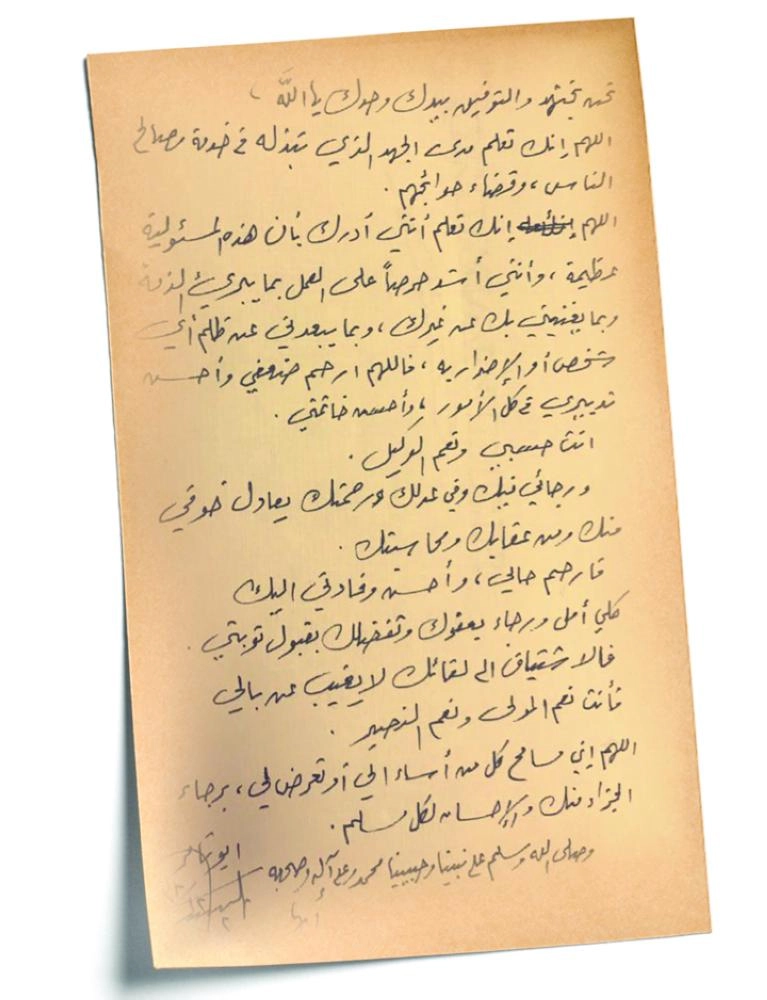 نحن نجتهد والتوفيق بيدك وحدك يا الله ،
اللهم إنك تعلم مدى الجهد الذي نبذله في خدمة مصالح
الناس ، وقضاء حوائجهم .
اللهم إنك تعلم أنني أدرك بأن هذه المسئولية
عظيمة ، وأنني أشد حرصاً على العمل بما يبريء الذمة
وبما يغنيني بك عن غيرك ، وبما يبعدني عن ظلم أي
شخص أو الإضرار به ، فاللهم ارحم ضعفي وأحسن
تدبيري في كل الأمور ، وأحسن خاتمتي .
انت حسبي ونعم الوكيل .
ورجائي فيك وفي عدلك ورحمتك يعادل خوفي
منك ومن عقابك ومحاسبتك .
فارحم حالي ، وأحسن وفادتي اليك
كلي أمل ورجاء بعفوك وتفضلك بقبول توبتي .
فالاشتياق الى لقائك لا يغيب عن بالي
فأنت نعم المولى ونعم النصير .
اللهم إني مسامح كل من أساء الي أو تعرض لي ، برجاء
الجزاء منك والإحسان لكل مسلم .
وصلى الله وسلم على نبينا وحبيبنا محمد وعلى آله وصحبه